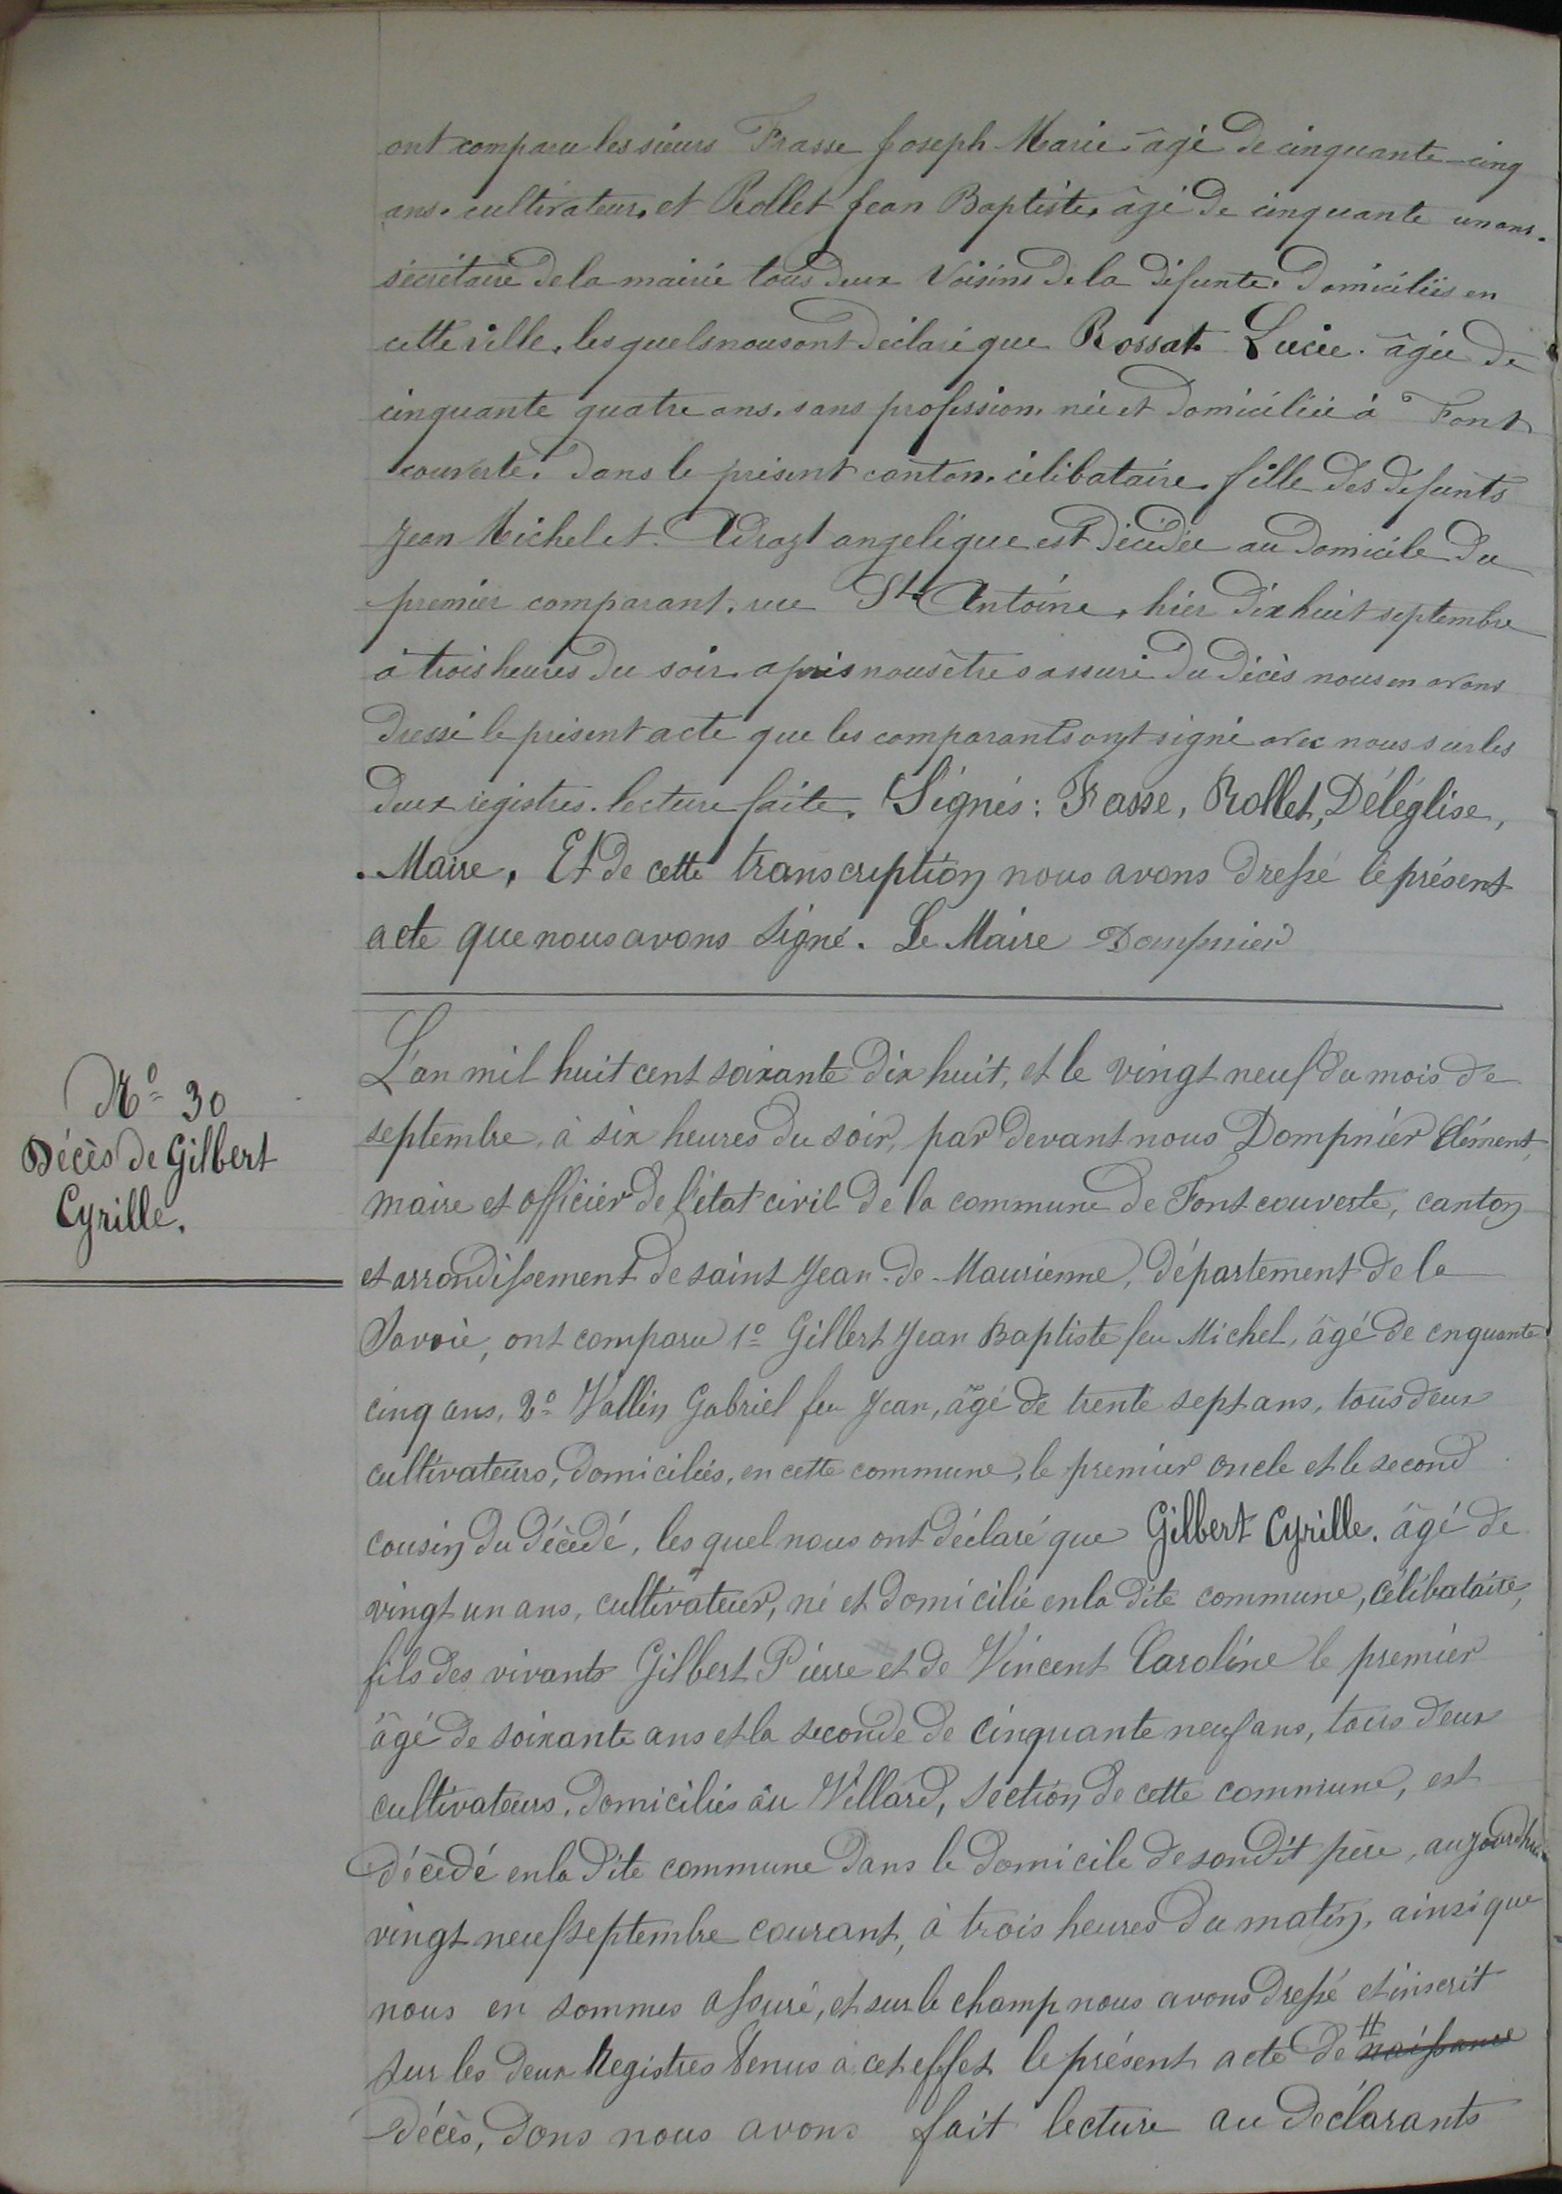 ont comparu les sieurs Frasse Joseph-Marie âgé de cinquante-cinq
ans. cultivateur. et Rollet Jean Baptiste. âgé de cinquante un ans.
sécrétaire de la mairie tous deux voisins de la défunte. Domiciliés en
cette ville. les quels nous ont déclaré que Rossat Lucie. âgée de
cinquante quatre ans. sans profession. née et domiciliée à Font
couverte. dans le présent canton. célibataire. fille des défunts
Jean Michel et angelique est décédée au domicile du
premier comparant. rue St Antoine, hier dix huit septembre
à trois heures du soir. après nous être assuré du décès nous en avons
dressé le présent acte que les comparants ont signé avec nous sur les
deux régistres. lecture faite. Signés: Frasse, Rollet, Déléglise,
Maire. Et de cette transcription nous avons dressé le présent
acte que nous avons signé. Le Maire Dompnier
L'an mil huit cent soixante dix huit, et le vingt neuf du mois de
N° 30
Décès de Gilbert
Cyrille.
septembre à six heures du soir, par devant nous Dompnier Clément,
maire et officier de l'état civil de la commune de Fontcouverte, canton
et arrondissement de saint Jean-de-Maurienne, département de la
Savoie, ont comparu 1° Gilbert Jean Baptiste feu Michel, âgé de cnquante
cinq ans, 2° Vallin Gabriel feu Jean, âgé de trente sept ans, tous deux
cultivateurs, domiciliés, en cette commune, le premier oncle et le second
cousin du décédé, les quel nous ont déclaré que Gilbert Cyrille. âgé de
vingt un ans, cultivateur, né et domicilié en la dite commune, célibataire,
fils des vivants Gilbert Pierre et de Vincent Caroline le premier
âgé de soixante ans et la seconde de cinquante neuf ans, tous deux
cultivateurs, domiciliés au Villard, section de cette commune, est
décèdé en la dite commune dans le domicile de son dit père, aujourdhui
vingt neuf septembre courant, à trois heures du matin, ainsi que
nous en sommes assuré, et sur le champ nous avons dressé et inscrit
sur les deux Registres tenus a cet effet le présent acte de # naissance
décès, dons nous avons fait lecture au déclarants